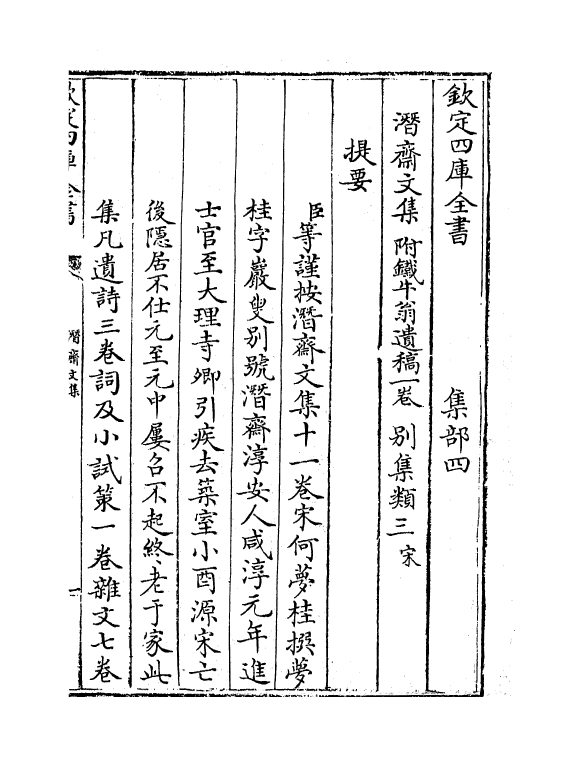 欽定四庫全書　集部四
潛齋文集附鐵牛翁遺稿一卷　别集類三宋
提要
臣等謹按潛齋文集十一卷宋何夢桂撰夢
桂字巖叟别號潛齋淳安人咸淳元年進
士官至大理寺卿引疾去築室小酉源宋亡
後隱居不仕元至元中屢召不起終老于家此
集凡遺詩三卷詞及小試策一卷雜文七卷
欽定四庫全書
潛齋文集
一